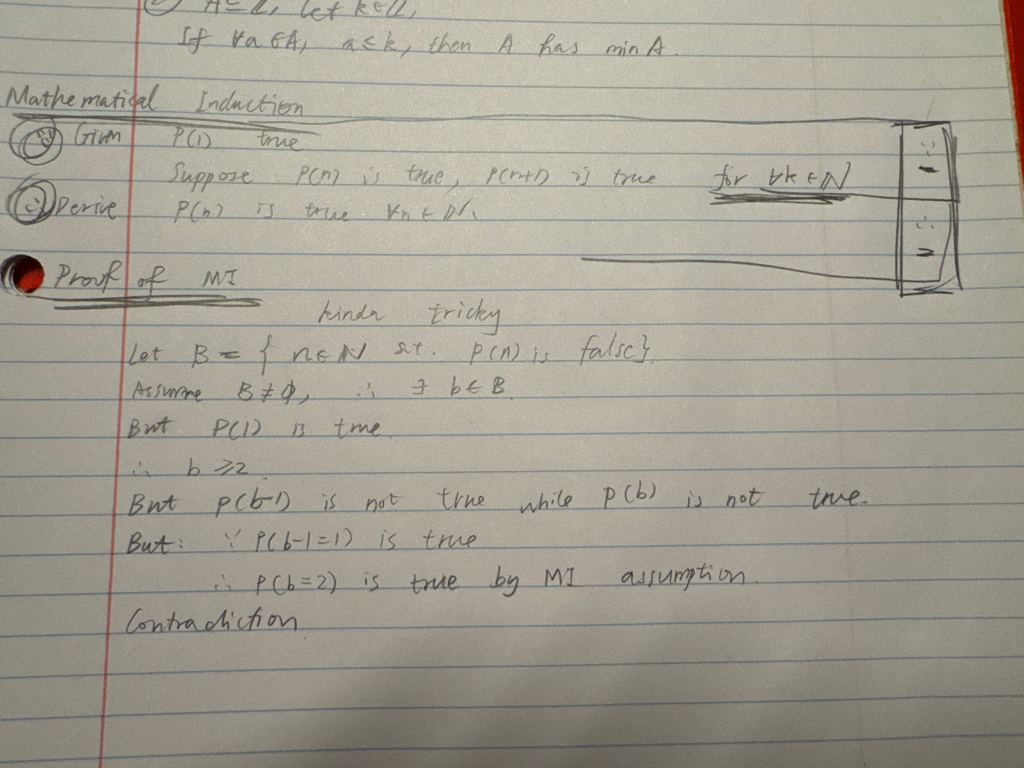 ② A⊆Z, let k∈Z,
If ∀a∈A, a≤k, then A has min A.
Mathematical Induction
Given P(1) true
Suppose P(n) is true, P(n+1) is true for ∀k∈N
Derive P(n) is true ∀n∈N.
Proof of MI
kinda tricky
Let B = { n∈N s.t. P(n) is false}.
Assume B≠∅, ∴ ∃ b∈B.
But P(1) is true.
∴ b ≥2
But P(b-1) is not true while P(b) is not true.
But: ∵ P(b-1=1) is true
∴ P(b=2) is true by MI assumption.
Contradiction